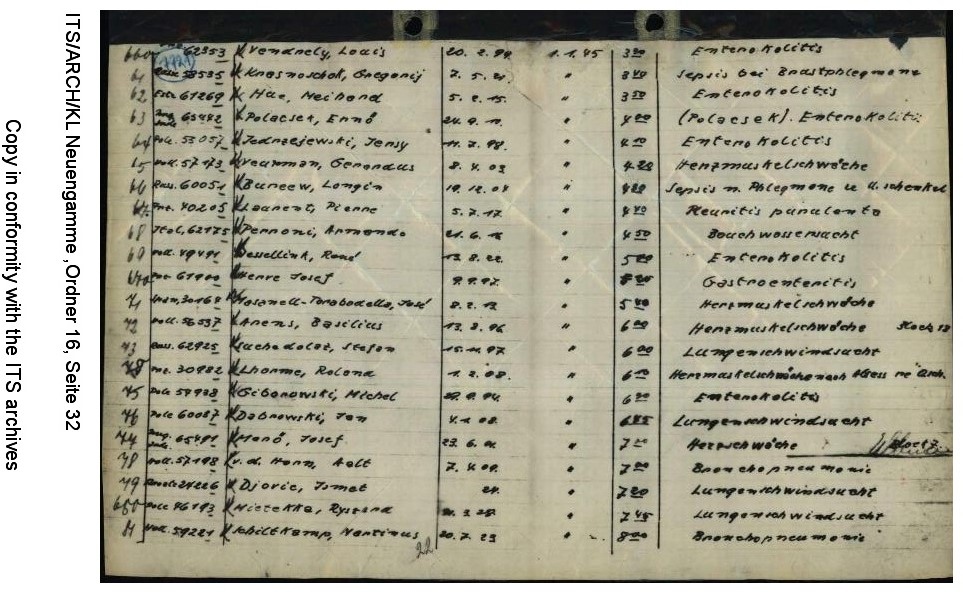 ITS/ARCH/KL Neuengamme, Ordner 16, Seite 32
Copy in conformity with the ITS archives
660 62353 Vendnely, Louis 20. 2. 1.1.45 3 30 Enterokolitis
1121
61 Russ. 58535 Krasnoschok, Gregorij 7. 5. 21 " 3 40 Sepsis bei Brustphlegmone
62 Est. 61269 Hae, Meihard 5. 2. 15. " 3 50 Enterokolitis
63 65482 Polacsek, Ernö 24. 9. 11. " 4 00 (Polacsek). Enterokolitis
64 Pole. 53057 Jedrzejewski, Jerzy 11. 7. 98. " 4 10 Enterokolitis
65 Holl. 57173 Veurman, Gerardus 8. 4. 03 4 20 Herzmuskelschwäche
66 Russ. 60051 Buneew, Longin 19. 12. 04 " Sepsis n. Phlegmone u. U.schenkel
67 Frz. 40205 Laurent, Pierre 5. 7. 17. " 4 40 Pleuritis purulenta
68 Ital. 62175 Perroni, Armando 21. 6. 15 " 4 50 Bauchwassersucht
69 Holl. 49491 Wesselink, René 13. 8. 22. " 5 00 Enterokolitis
670 61900 Henre Josef 9.9.97. " 5 20 Gastroenteritis
71 Span. 30164 Masanell-Tarabadella, José 8. 2. 13 " 5 40 Herzmuskelschwäche
72 Holl. 56537 Arens, Basilius 13. 8. 96 " 6 00 Herzmuskelschwäche Block 12
73 Russ. 62925 Suchodolaz, Stefan 15. 11. 97 " 6 00 Lungenschwindsucht
Frz. 30982 Lhorme, Roland 1. 2. 08. " 6 10 Herzmuskelschwäche nach
75 Pole 59938 Ciborowski, Michel " 6 20 Enterokolitis
76 Pole 60087 Dabrowski, Jan 4. 1. 08. " 6 45 Lungenschwindsucht
65491 Manó, Josef 23. 6. 01. " 7 00 Herzschwäche
78 Holl. 57198 v. d. Horn, Aalt 7. 4. 09. " 7 00 Bronchopneumonie
79 24226 Djoric, Ismet 24. " 7 20 Lungenschwindsucht
680 Pole 46193 Mierekka, Ryszard " 7 45 Lungenschwindsucht
81 Holl. 59221 Schiltkamp, Martinus 20. 7. 23 " 8 00 Bronchopneumonie
22